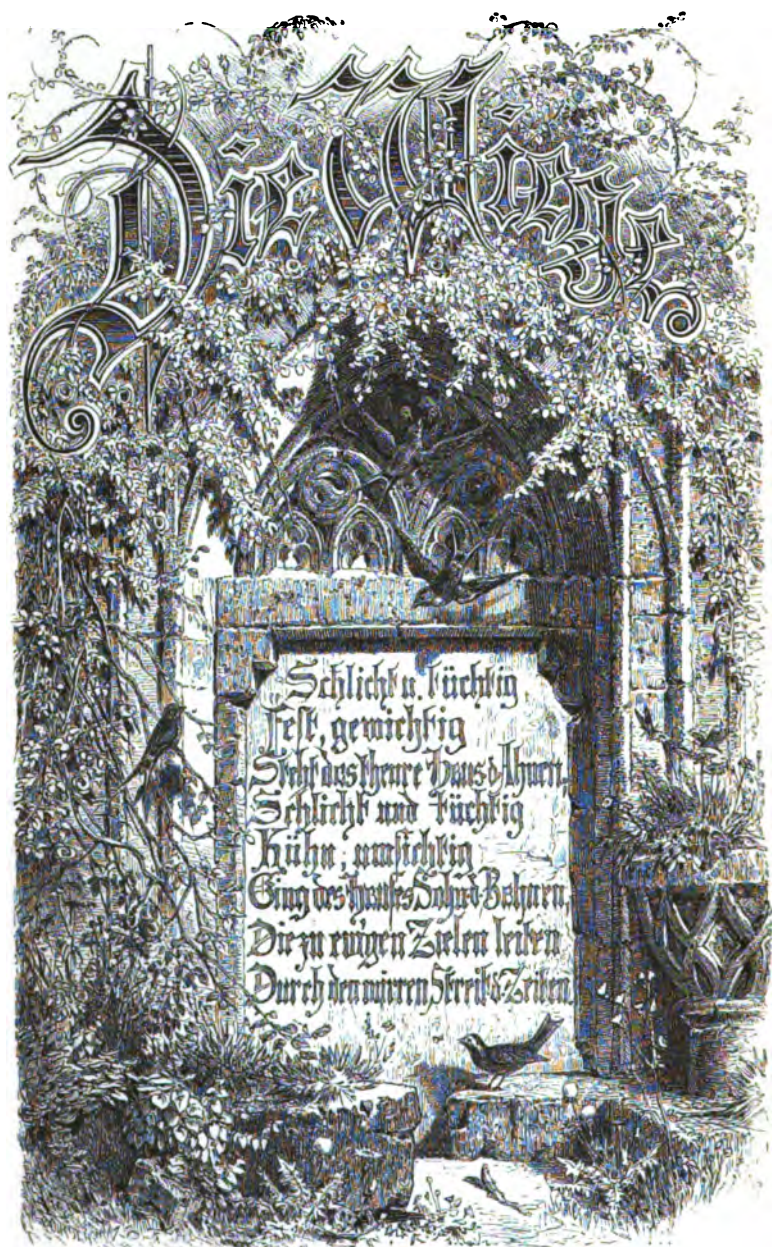 Die Wiege
Schlicht u. tüchtig
Fest, gewichtig
Steht das theure Haus d. Ahnen.
Schlicht und tüchtig
Kühn, umsichtig
Ging des Hauses Sohn d. Bahnen,
Die zu ewigen Zielen leiten
Durch den wirren Streit d. Zeiten.